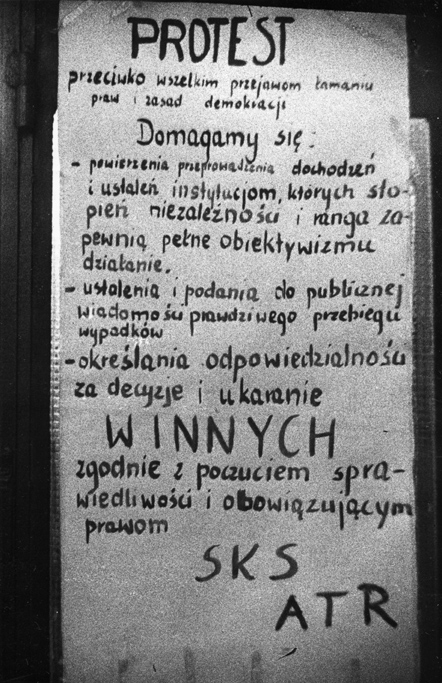 PROTEST
przeciwko wszelkim przejawom łamaniu
praw i zasad demokracji
Domagamy się:
- powierzenia przeprowadzenia dochodzeń
i ustaleń instytucjom, których sto-
pień niezależności i ranga za-
pewnią pełne obiektywizmu
działanie.
- ustalenia i podania do publicznej
wiadomości prawdziwego przebiegu
wypadków
- określania odpowiedzialności
za decyzje i ukaranie
WINNYCH
zgodnie z poczuciem spra-
wiedliwości i obowiązującym
prawom
SKS
ATR